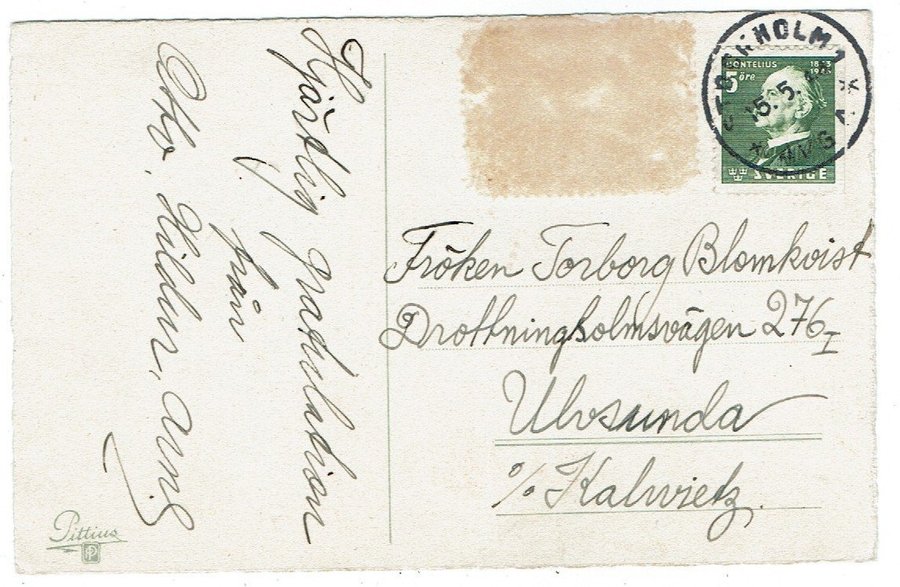 Hjärtlig gratulation
från
Otto, Hildur,
MONTELIUS 1843
5 öre 1943
SVERIGE
15. 5.
Fröken Torborg Blomkvist
Drottningholmsvägen 276 I
Ulvsunda
c/o Kalwietz.
Pittius
P